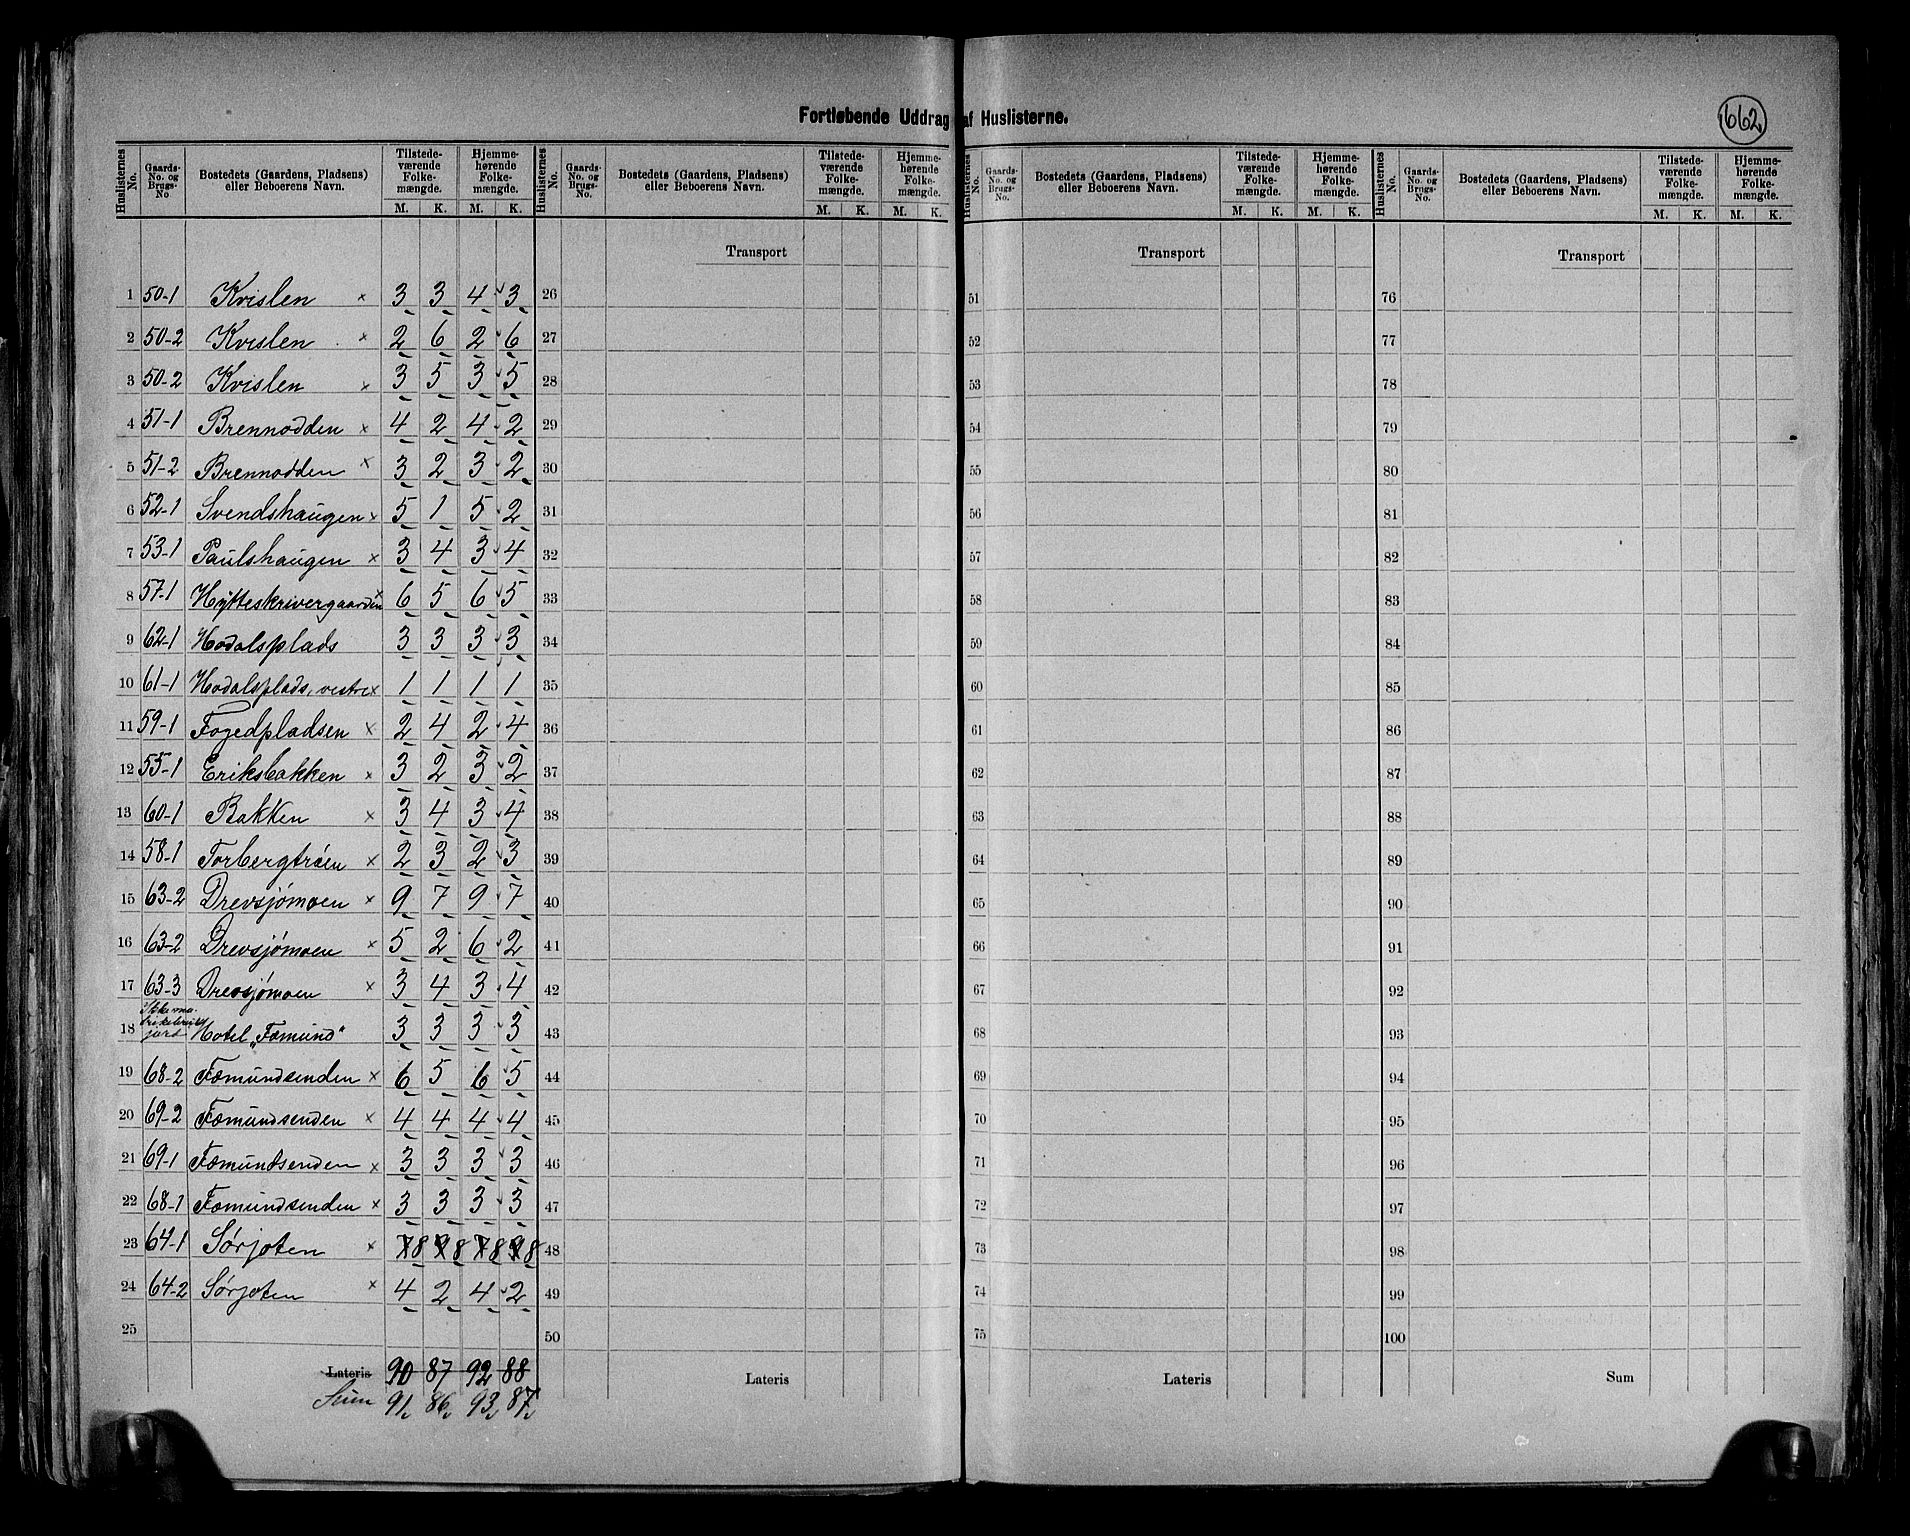 Fortløbende Uddrag af Huslisterne.
662
Huslisternes No. | Gaards-No. og Brugs-No | Bostedets (Gaardens, Pladsens) eller Beboerens Navn. | Tilstedeværende Folkemængde. M. K. | Hjemmehørende Folkemængde. M. K.
1 50-1 Kvislen × 3 3 4 3
2 50-2 Kvislen × 2 6 2 6
3 50-2 Kvislen × 3 5 3 5
4 51-1 Brennodden × 4 2 4 2
5 51-2 Brennodden × 3 2 3 2
6 52-1 Svendshaugen × 5 1 5 2
7 53-1 Paulshaugen × 3 4 3 4
8 57-1 Hytteskrivergaarden × 6 5 6 5
9 62-1 Hodalsplads 3 3 3 3
10 61-1 Hodalsplads, vestre × 1 1 1 1
11 59-1 Fogedpladsen × 2 4 2 4
12 55-1 Eriksbakken × 3 2 3 2
13 60-1 Bakken × 3 4 3 4
14 58-1 Torbergtrøen × 2 3 2 3
15 63-2 Drevsjømoen × 9 7 9 7
16 63-2 Drevsjømoen × 5 2 6 2
17 63-3 Drevsjømoen × 3 4 3 4
18 Hotel „Fæmund" 3 3 3 3
19 68-2 Fæmundsenden × 6 5 6 5
20 69-2 Fæmundsenden × 4 4 4 4
21 69-1 Fæmundsenden × 3 3 3 3
22 68-1 Fæmundsenden × 3 3 3 3
23 64-1 Sørjoten × 78 98 78 98
24 64-2 Sørjoten × 4 2 4 2
25
Lateris 90 87 92 88
Sum 91 86 93 87
Huslisternes No. | Gaards-No. og Brugs-No. | Bostedets (Gaardens, Pladsens) eller Beboerens Navn. | Tilstedeværende Folkemængde. M. K. | Hjemmehørende Folkemængde. M. K.
Transport
26
27
28
29
30
31
32
33
34
35
36
37
38
39
40
41
42
43
44
45
46
47
48
49
50
Lateris
Huslisternes No. | Gaards-No. og Brugs-No. | Bostedets (Gaardens, Pladsens) eller Beboerens Navn. | Tilstedeværende Folkemængde. M. K. | Hjemmehørende Folkemængde. M. K.
Transport
51
52
53
54
55
56
57
58
59
60
61
62
63
64
65
66
67
68
69
70
71
72
73
74
75
Lateris
Huslisternes No. | Gaards-No. og Brugs-No. | Bostedets (Gaardens, Pladsens) eller Beboerens Navn. | Tilstedeværende Folkemængde. M. K. | Hjemmehørende Folkemængde. M. K.
Transport
76
77
78
79
80
81
82
83
84
85
86
87
88
89
90
91
92
93
94
95
96
97
98
99
100
Sum